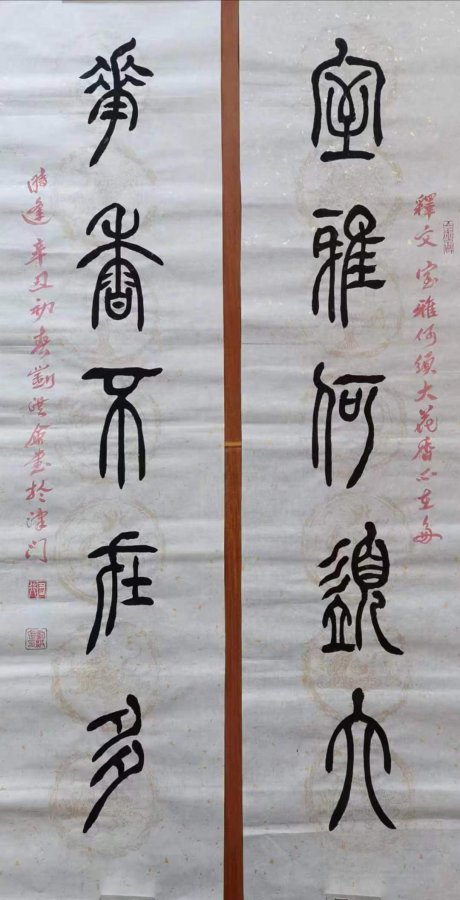 釋文 室雅何須大花香不在多
室雅何須大
華香不在多
時逢辛丑初春劉洪俞書於津門